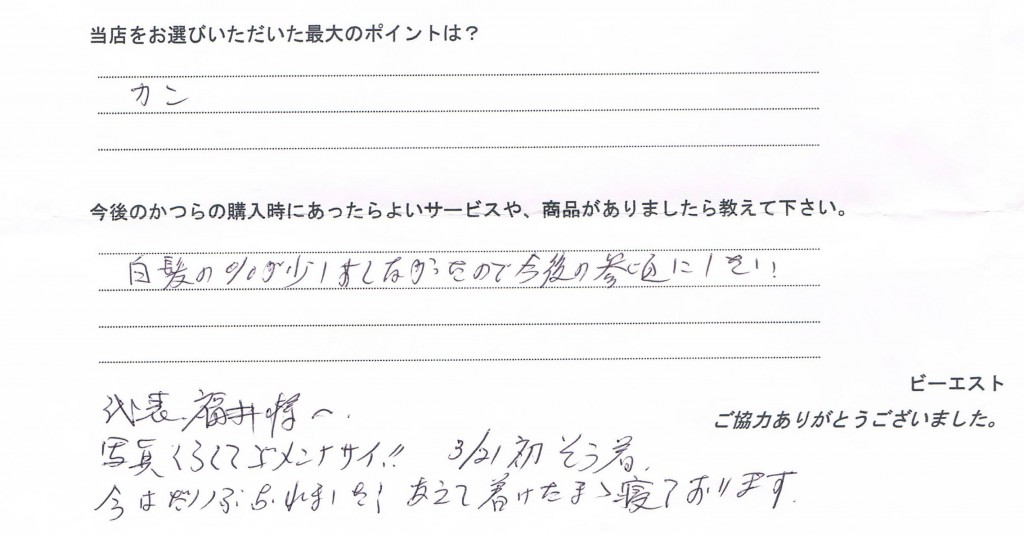 当店をお選びいただいた最大のポイントは？
カン
今後のかつらの購入時にあったらよいサービスや、商品がありましたら教えて下さい。
白髪の%が少し なかったので今後の参 にしたい！
ビーエスト
ご協力ありがとうございました。
代表.福井様へ.
写真くらくてゴメンナサイ!! 3/21初そう着.
今はだいぶなれました！あえて着けたまゝ寝ております.